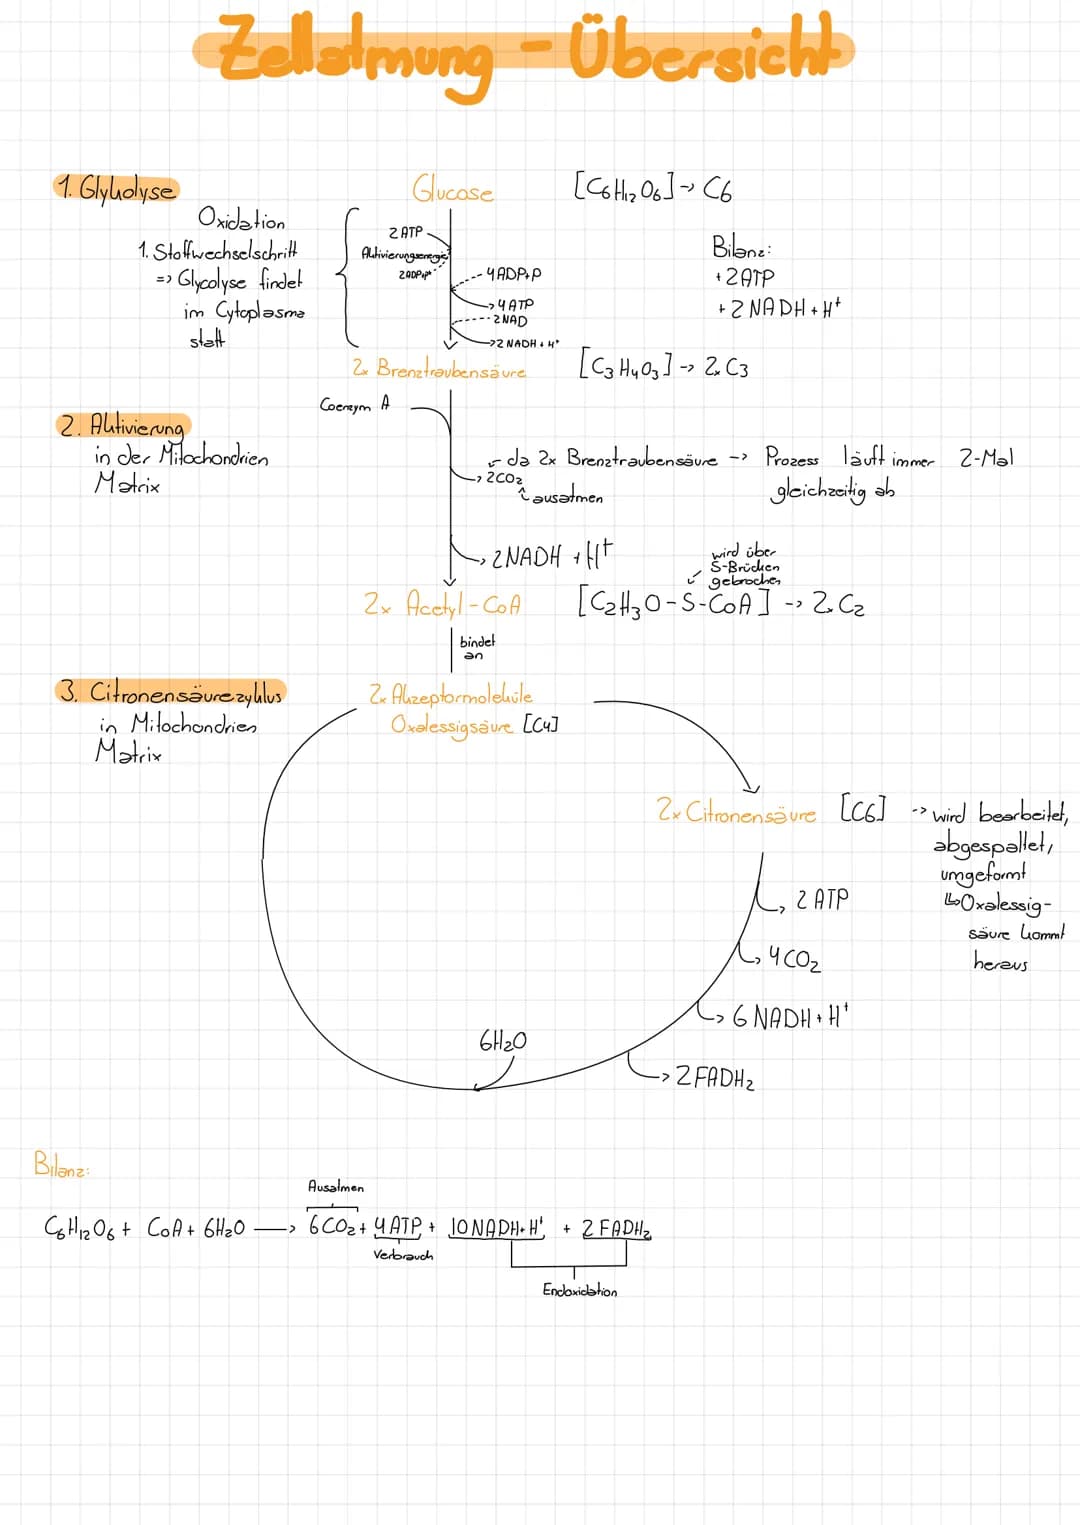 Zellatmung - Übersicht
1. Glykolyse
Oxidation
1. Stoffwechselschritt
=> Glycolyse findet
im Cytoplasma
statt
Glucose
[C6H12O6] -> C6
2 ATP
Aktivierungsenergie
2ADP+P
4ADP+P
->4ATP
2NAD
->2 NADH + H⁺
Bilanz:
+2ATP
+2 NADH + H⁺
2x Brenztraubensäure
[C3H4O3] -> 2x C3
Coenzym A
2. Aktivierung
in der Mitochondrien
Matrix
da 2x Brenztraubensäure -> Prozess läuft immer 2-Mal
gleichzeitig ab
-> 2CO2
ausatmen
-> 2NADH + H⁺
wird über
S-Brücken
gebrochen
2x Acetyl-CoA
[C2H3O-S-CoA] -> 2x C2
bindet
an
3. Citronensäurezyklus
in Mitochondrien
Matrix
2x Akzeptormoleküle
Oxalessigsäure [C4]
2x Citronensäure [C6] -> wird bearbeitet,
abgespaltet,
umgeformt
↳Oxalessig-
säure kommt
heraus
-> 2 ATP
-> 4CO2
-> 6NADH+H⁺
-> 2FADH2
6H2O
Bilanz:
Ausatmen
C6H12O6 + CoA + 6H2O -> 6CO2 + 4ATP + 10NADH+H⁺ + 2FADH2
Verbrauch
Endoxidation